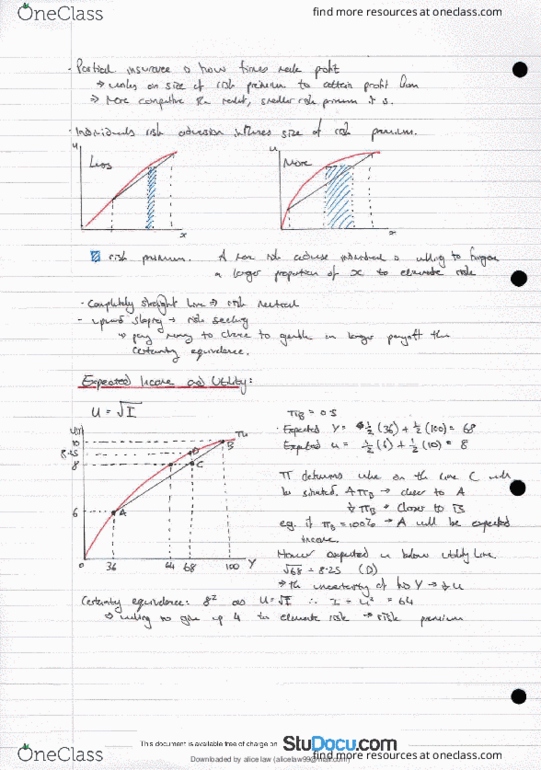 OneClass
find more resources at oneclass.com
· Partial insurance is how firms make profit
→ works on size of risk premium to obtain profit from
→ More competitive the market, smaller risk premium it is.
· Individuals risk adversion influences size of risk premium.
u
Less
x
u
More
x
risk premium. A more risk adverse individual is willing to forgoe
a larger proportion of x to eliminate risk
· Completely straight line → risk neutral
- upward sloping → risk seeking
→ pay money to chance to gamble on larger payoff than
certainty equivalence.
Expected Income and Utility:
U = √I
π_B = 0.5
· Expected Y = ½(36) + ½(100) = 68
Expected u = ½(6) + ½(10) = 8
U(I)
10
8.25
8
6
A
D
C
B
TU
0
36
64
68
100
Y
π determines where on the line C will
be situated. ↑π_A → closer to A
↑π_B → closer to B
eg. if π_B = 100% → A will be expected
income.
However expected u below utility line.
√68 = 8.25 (D)
→ the uncertainty of two Y → ↓u
Certainty equivalence: 8² as U=√I ∴ I = u² = 64
→ willing to give up 4 to eliminate risk → risk premium
This document is available free of charge on StuDocu.com
Downloaded by alice law
OneClass
find more resources at oneclass.com